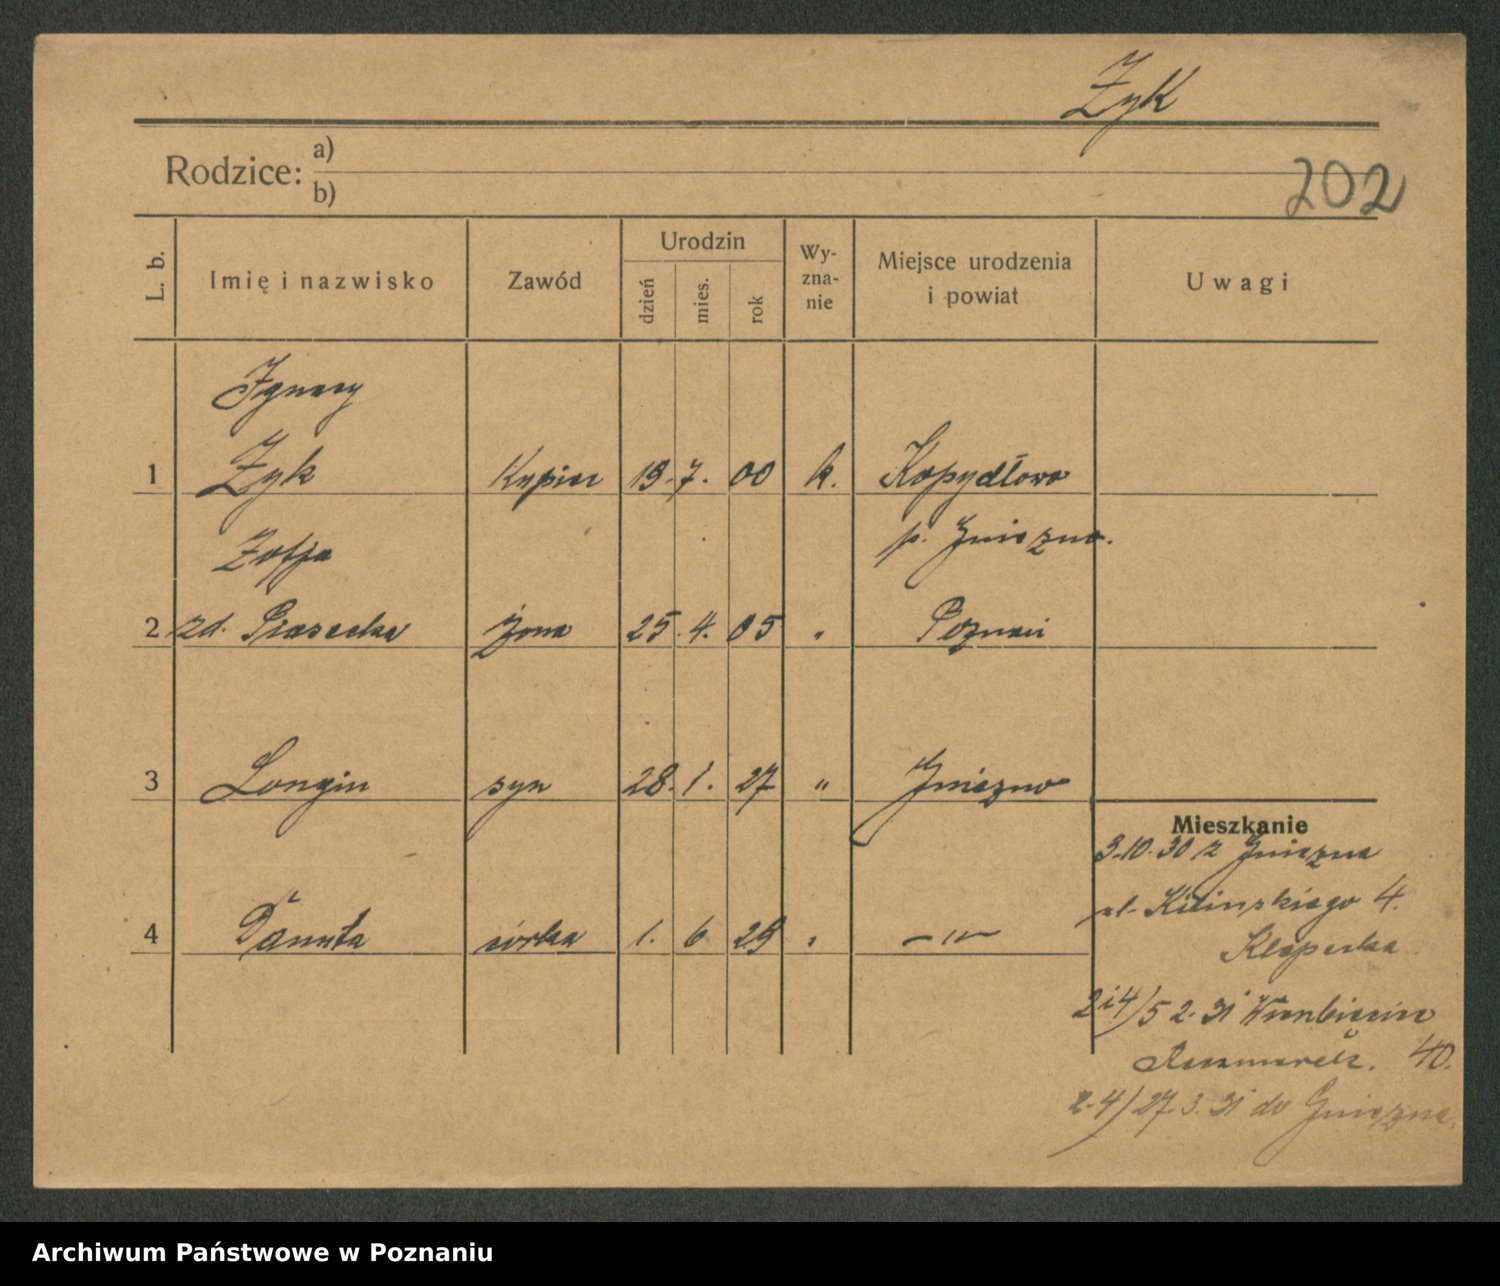 Żyk
Rodzice: a)
b)
202
L. b. Imię i nazwisko Zawód Urodzin dzień mies. rok Wy-zna-nie Miejsce urodzenia i powiat Uwagi
Ignacy
1 Żyk Kupiec 19. 7. 00 k. Kopydłowo
p. Gniezno.
Zofja
2 zd. Piasecka żona 25. 4. 05 " Poznań
3 Longin syn 28. 1. 27 " Gniezno
Mieszkanie
3.10.30 z Gniezna
ul. Kilińskiego 4.
4 Danuta córka 1. 6 29 " — " —
2 i 4) 5 2. 31
40.
2-4) 27.3.31 do Gniezna
Archiwum Państwowe w Poznaniu